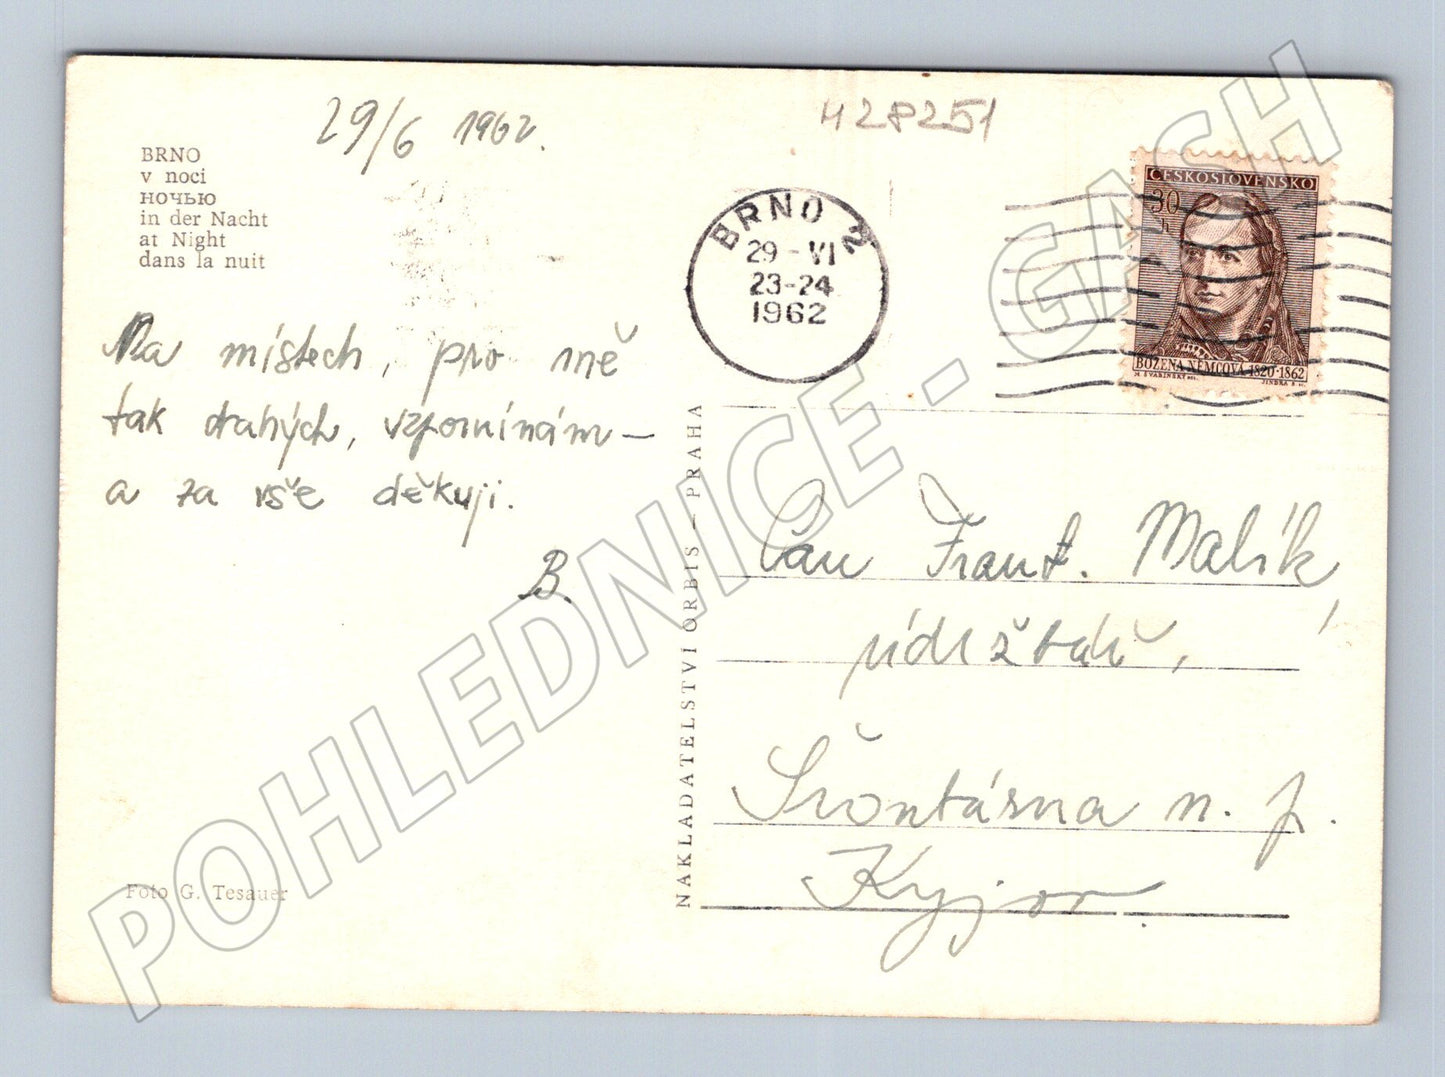 29/6 1962.
428251
BRNO
v noci
ночью
in der Nacht
at Night
dans la nuit
BRNO 2
29-VI
23-24
1962
ČESKOSLOVENSKO
30
h
BOŽENA NĚMCOVÁ 1820-1862
M. ŠVABINSKÝ DEL.
JINDRA SC.
Na místech, pro mě
tak drahých, vzpomínám –
a za vše děkuji.
B.
NAKLADATELSTVÍ ORBIS – PRAHA
Pan Frant. Malík,
údržbář,
Šrontárna n. p.
Kyjov
Foto G. Tesauer
POHLEDNICE - GASH